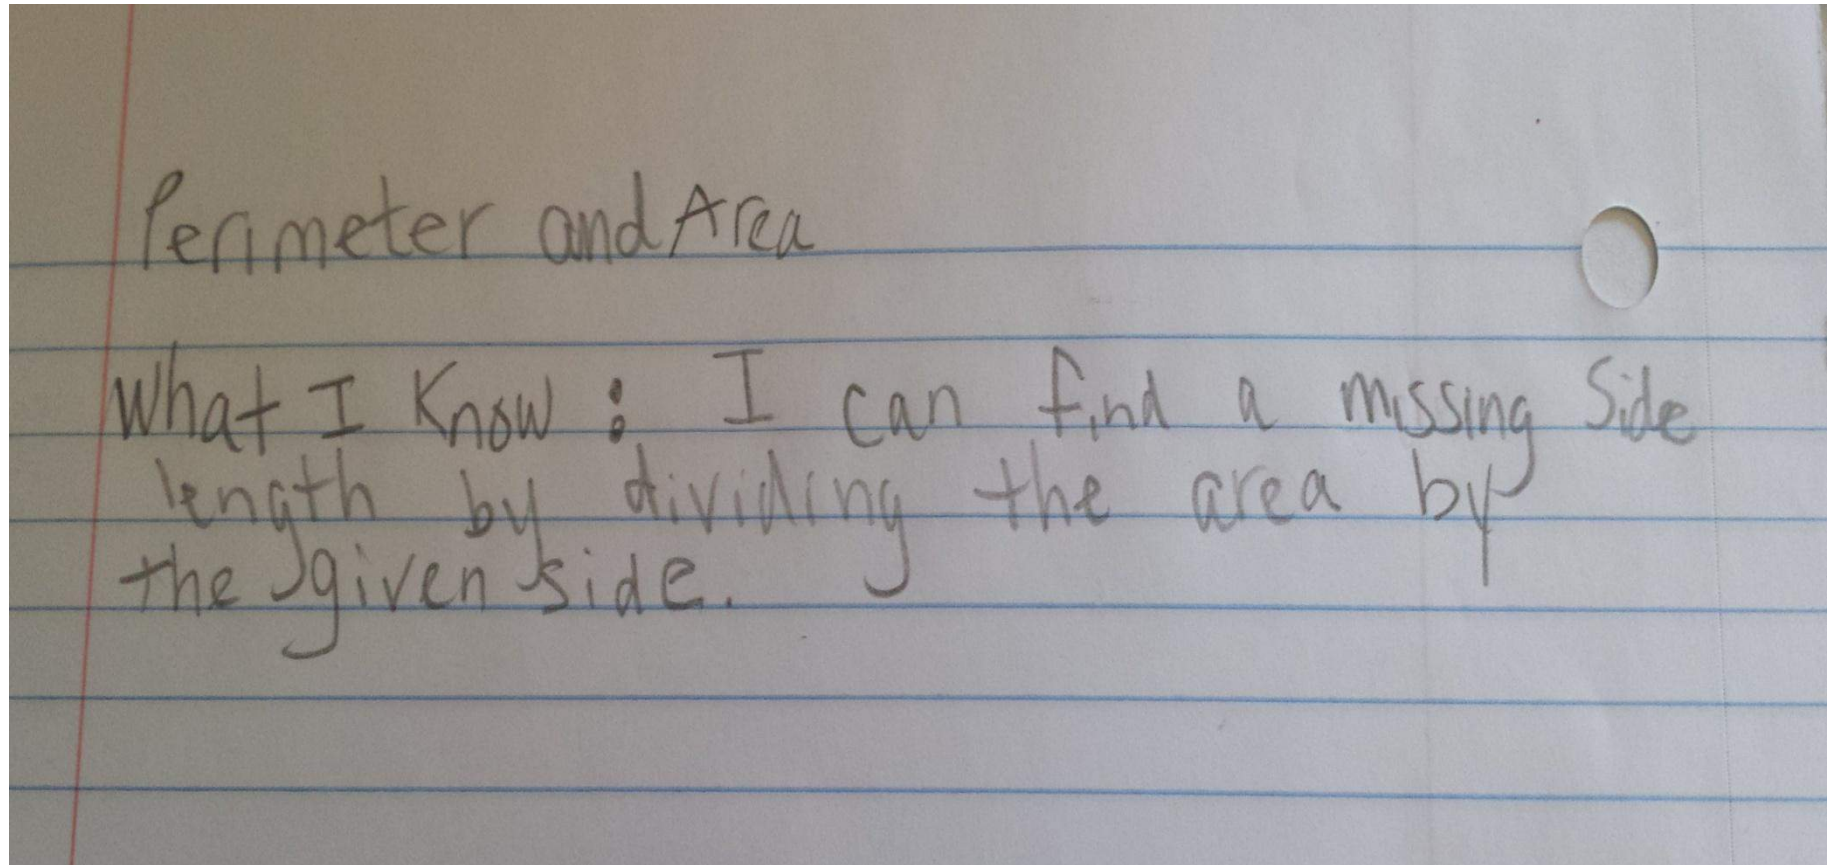 Perimeter and Area
What I Know: I can find a missing Side
length by dividing the area by
the given side.